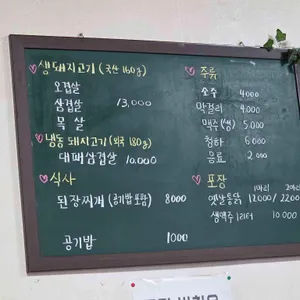 생돼지고기 (국산 160g)
오겹살
삼겹살 13,000
목살
냉동 돼지고기 (외국 180g)
대패삼겹살 10,000
식사
된장찌개 (공기밥 포함) 8000
공기밥 1000
주류
소주 4000
막걸리 4,000
맥주(생) 5.000
청하 6.000
음료 2.000
포장
1마리 2마리
옛날통닭 12000 / 22000
생맥주 1리터 10.000